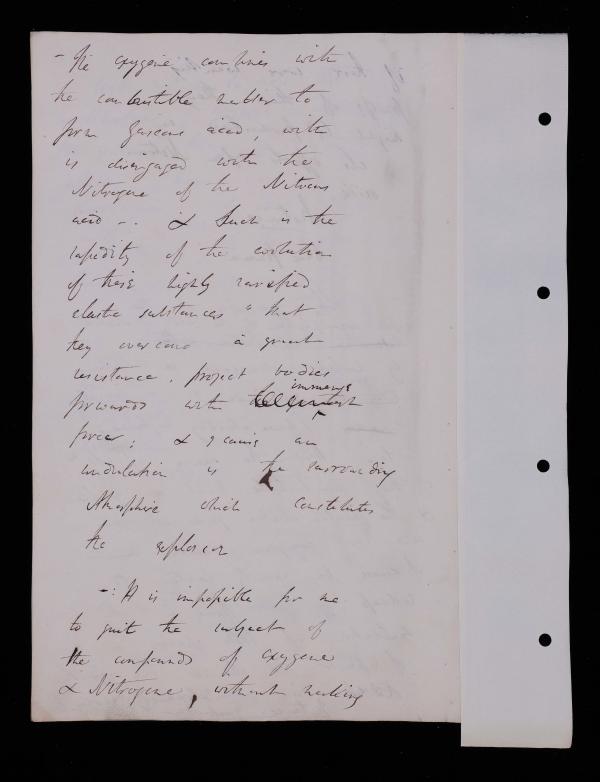 - The oxygene combines with
the combustible matter to
form gaseous acid, with
is disengaged with the
Nitrogene of the Nitrous
acid -. & Such is the
rapidity of the evolution
of these highly rarified
elastic substances that
they overcome a great
resistance, project bodies
forwards with the immense
force; & cause an
undulation in the surrounding
Atmosphere which constitutes
the explosion
-: It is impossible for me
to quit the subject of
the compounds of oxygene
& Nitrogene, without making